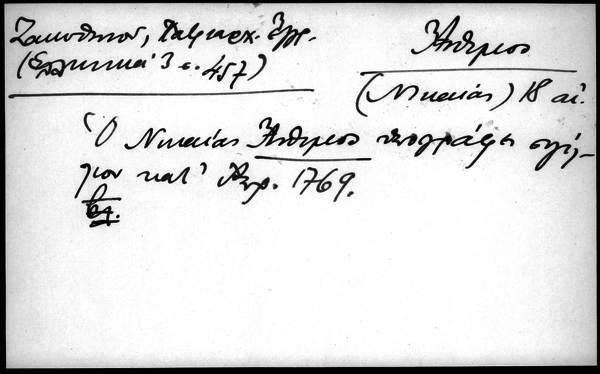 Ζακυθηνού, Πατριαρχ. Έγγρ.
(Ελληνικά 3 σ. 457)
Άνθιμος
(Νικαίας) 18 αι.
Ὁ Νικαίας Άνθιμος υπογράφει σιγίλ-
λιον κατ' Απρ. 1769.